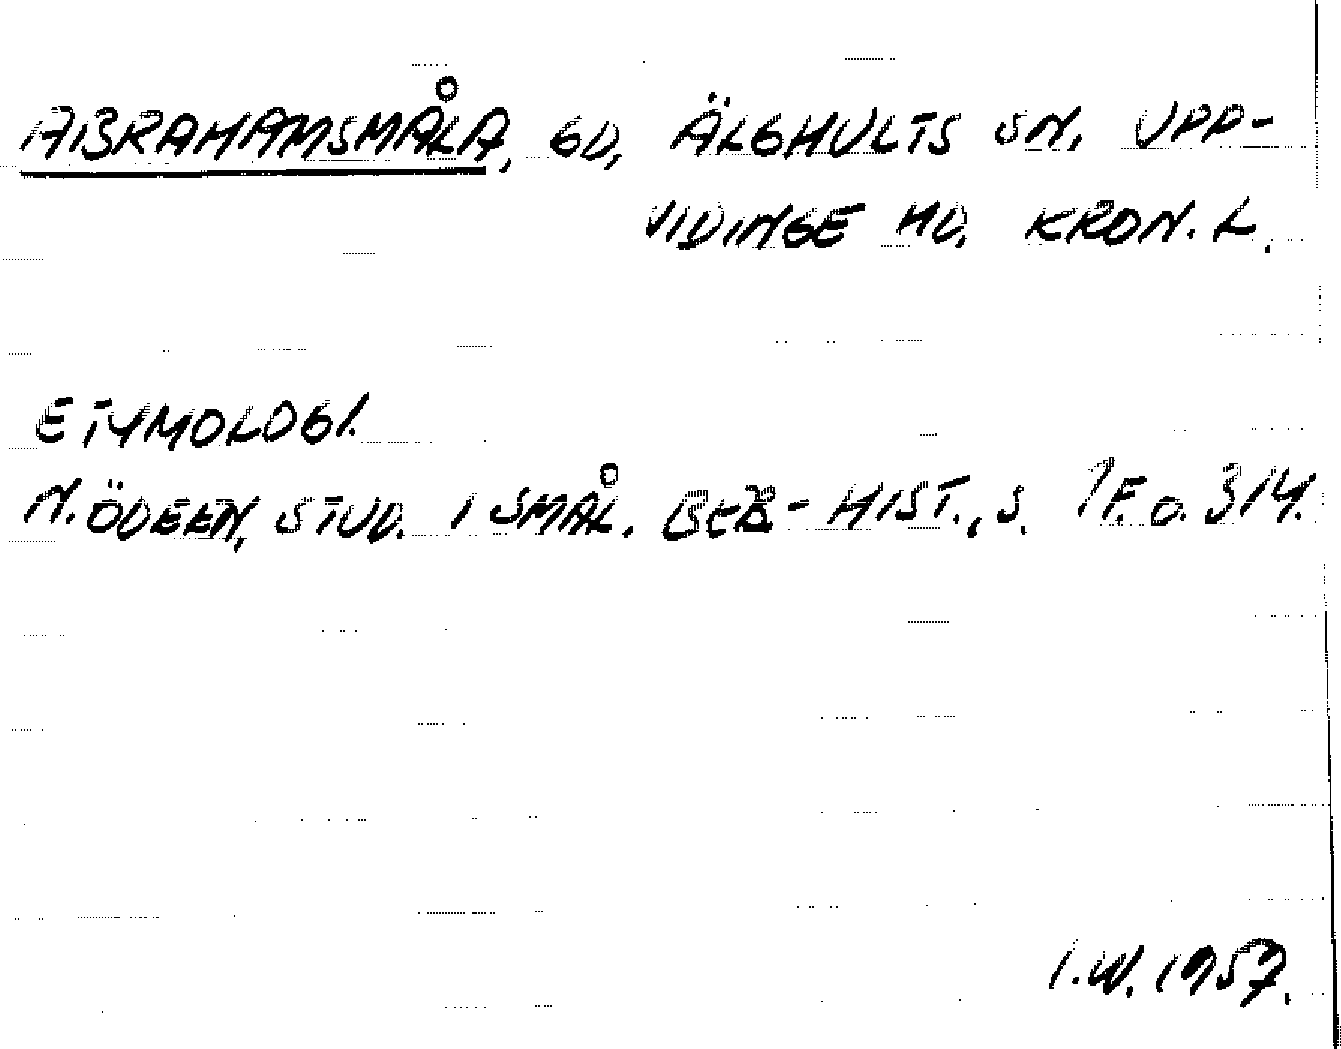 ABRAHAMSMÅLA, GD, ÄLGHULTS SN, UPP-
VIDINGE HD, KRON. L.
ETYMOLOGI.
N. ÖDEEN, STUD. I SMÅL. BEB-HIST., S. 7 F. O. 314.
I.W. 1957.